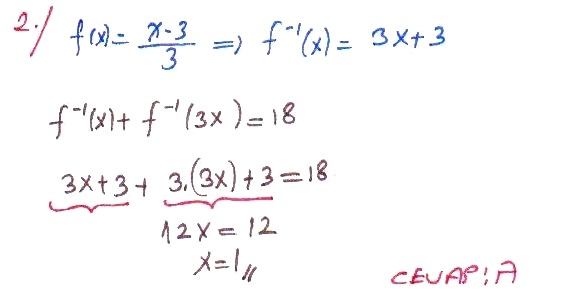 2./ f(x) = x-3/3 => f⁻¹(x) = 3x+3
f⁻¹(x) + f⁻¹(3x) = 18
3x+3 + 3.(3x)+3 = 18
12x = 12
x=1//
CEVAP: A